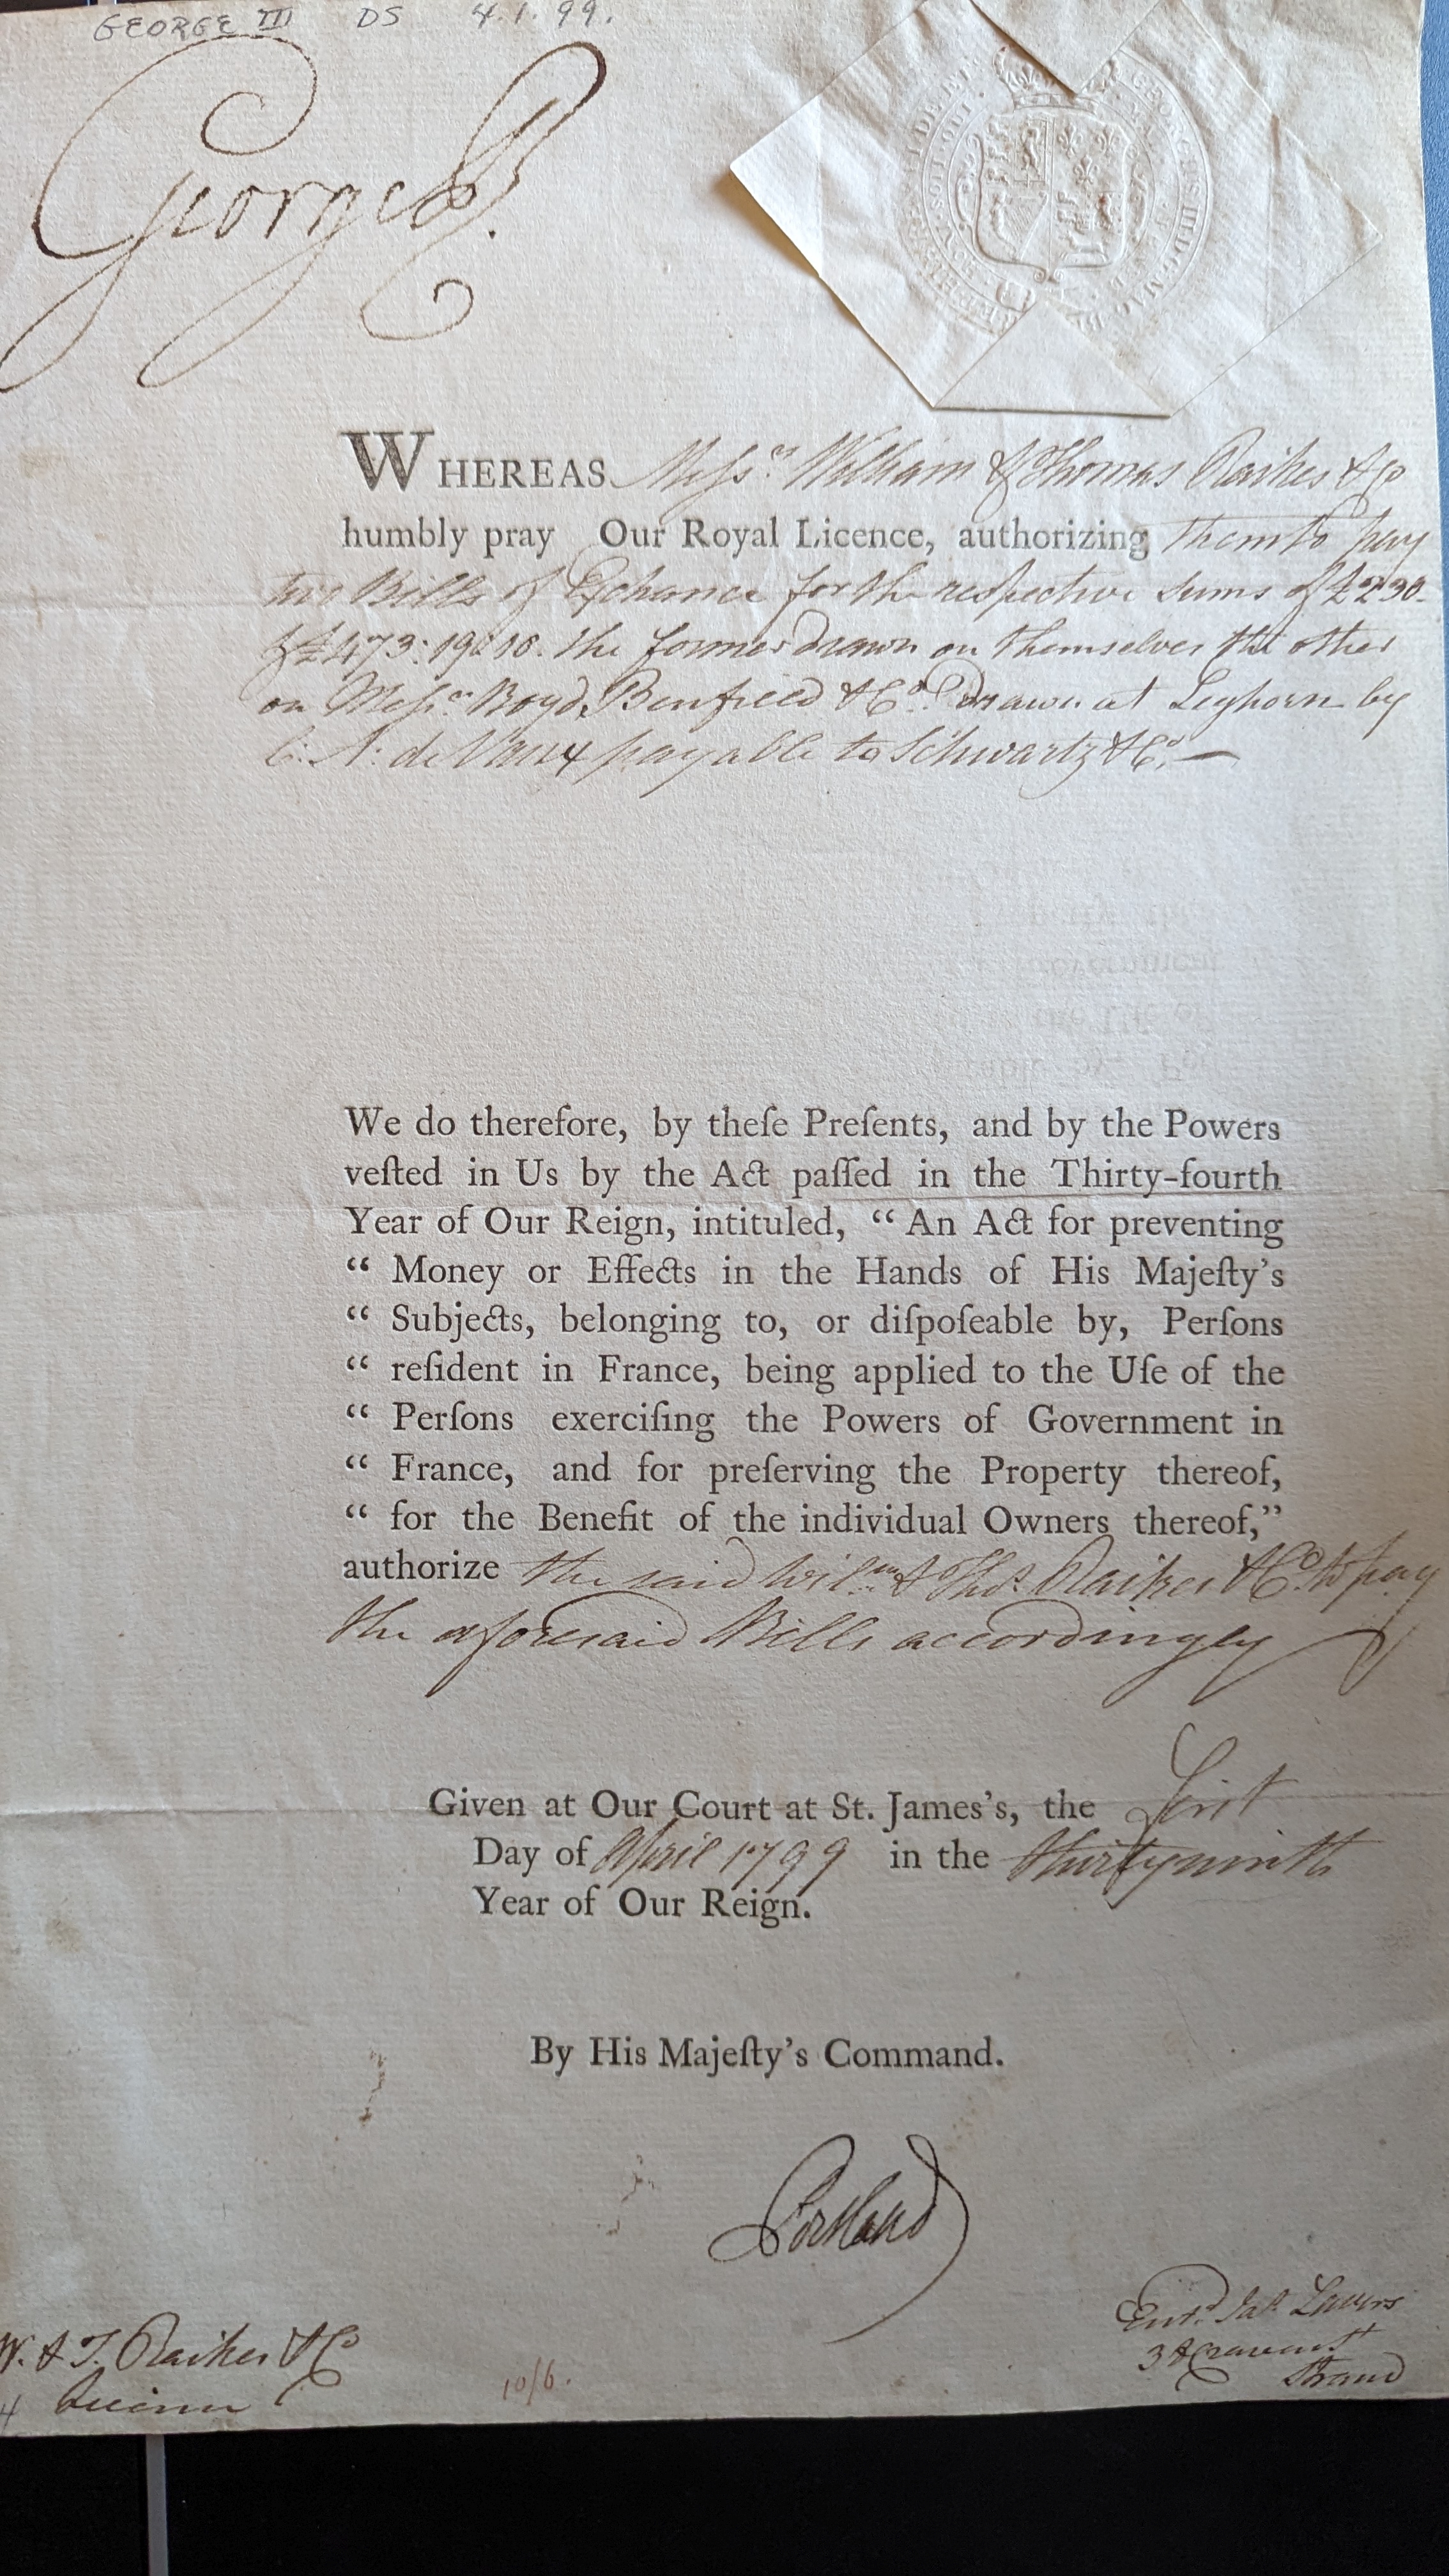 GEORGE III DS 4.1.99.
George R.
GEORGIUS III D G MAG BR
WHEREAS Messrs William & Thomas Raikes & Co
humbly pray Our Royal Licence, authorizing them to pay
two Bills of Exchance for the respective sums of £230-
& £473:19:10. the former drawn on themselves the other
on Messrs Boyd, Benfield & Co. Drawn at Leghorn by
C. A: de Vaux payable to Schwartz & Co. —
We do therefore, by theſe Preſents, and by the Powers
veſted in Us by the Act paſſed in the Thirty-fourth
Year of Our Reign, intituled, “ An Act for preventing
“ Money or Effects in the Hands of His Majeſty's
“ Subjects, belonging to, or diſpoſeable by, Perſons
“ reſident in France, being applied to the Uſe of the
“ Perſons exerciſing the Powers of Government in
“ France, and for preſerving the Property thereof,
“ for the Benefit of the individual Owners thereof,”
authorize the said Willm & Thos Raikes & Co. to pay
the aforesaid Bills accordingly
Given at Our Court at St. James's, the First
Day of April 1799 in the thirty ninth
Year of Our Reign.
By His Majeſty's Command.
Portland
W. & T. Raikes & Co
10/6.
Entd. Jas. Lauers
Strand